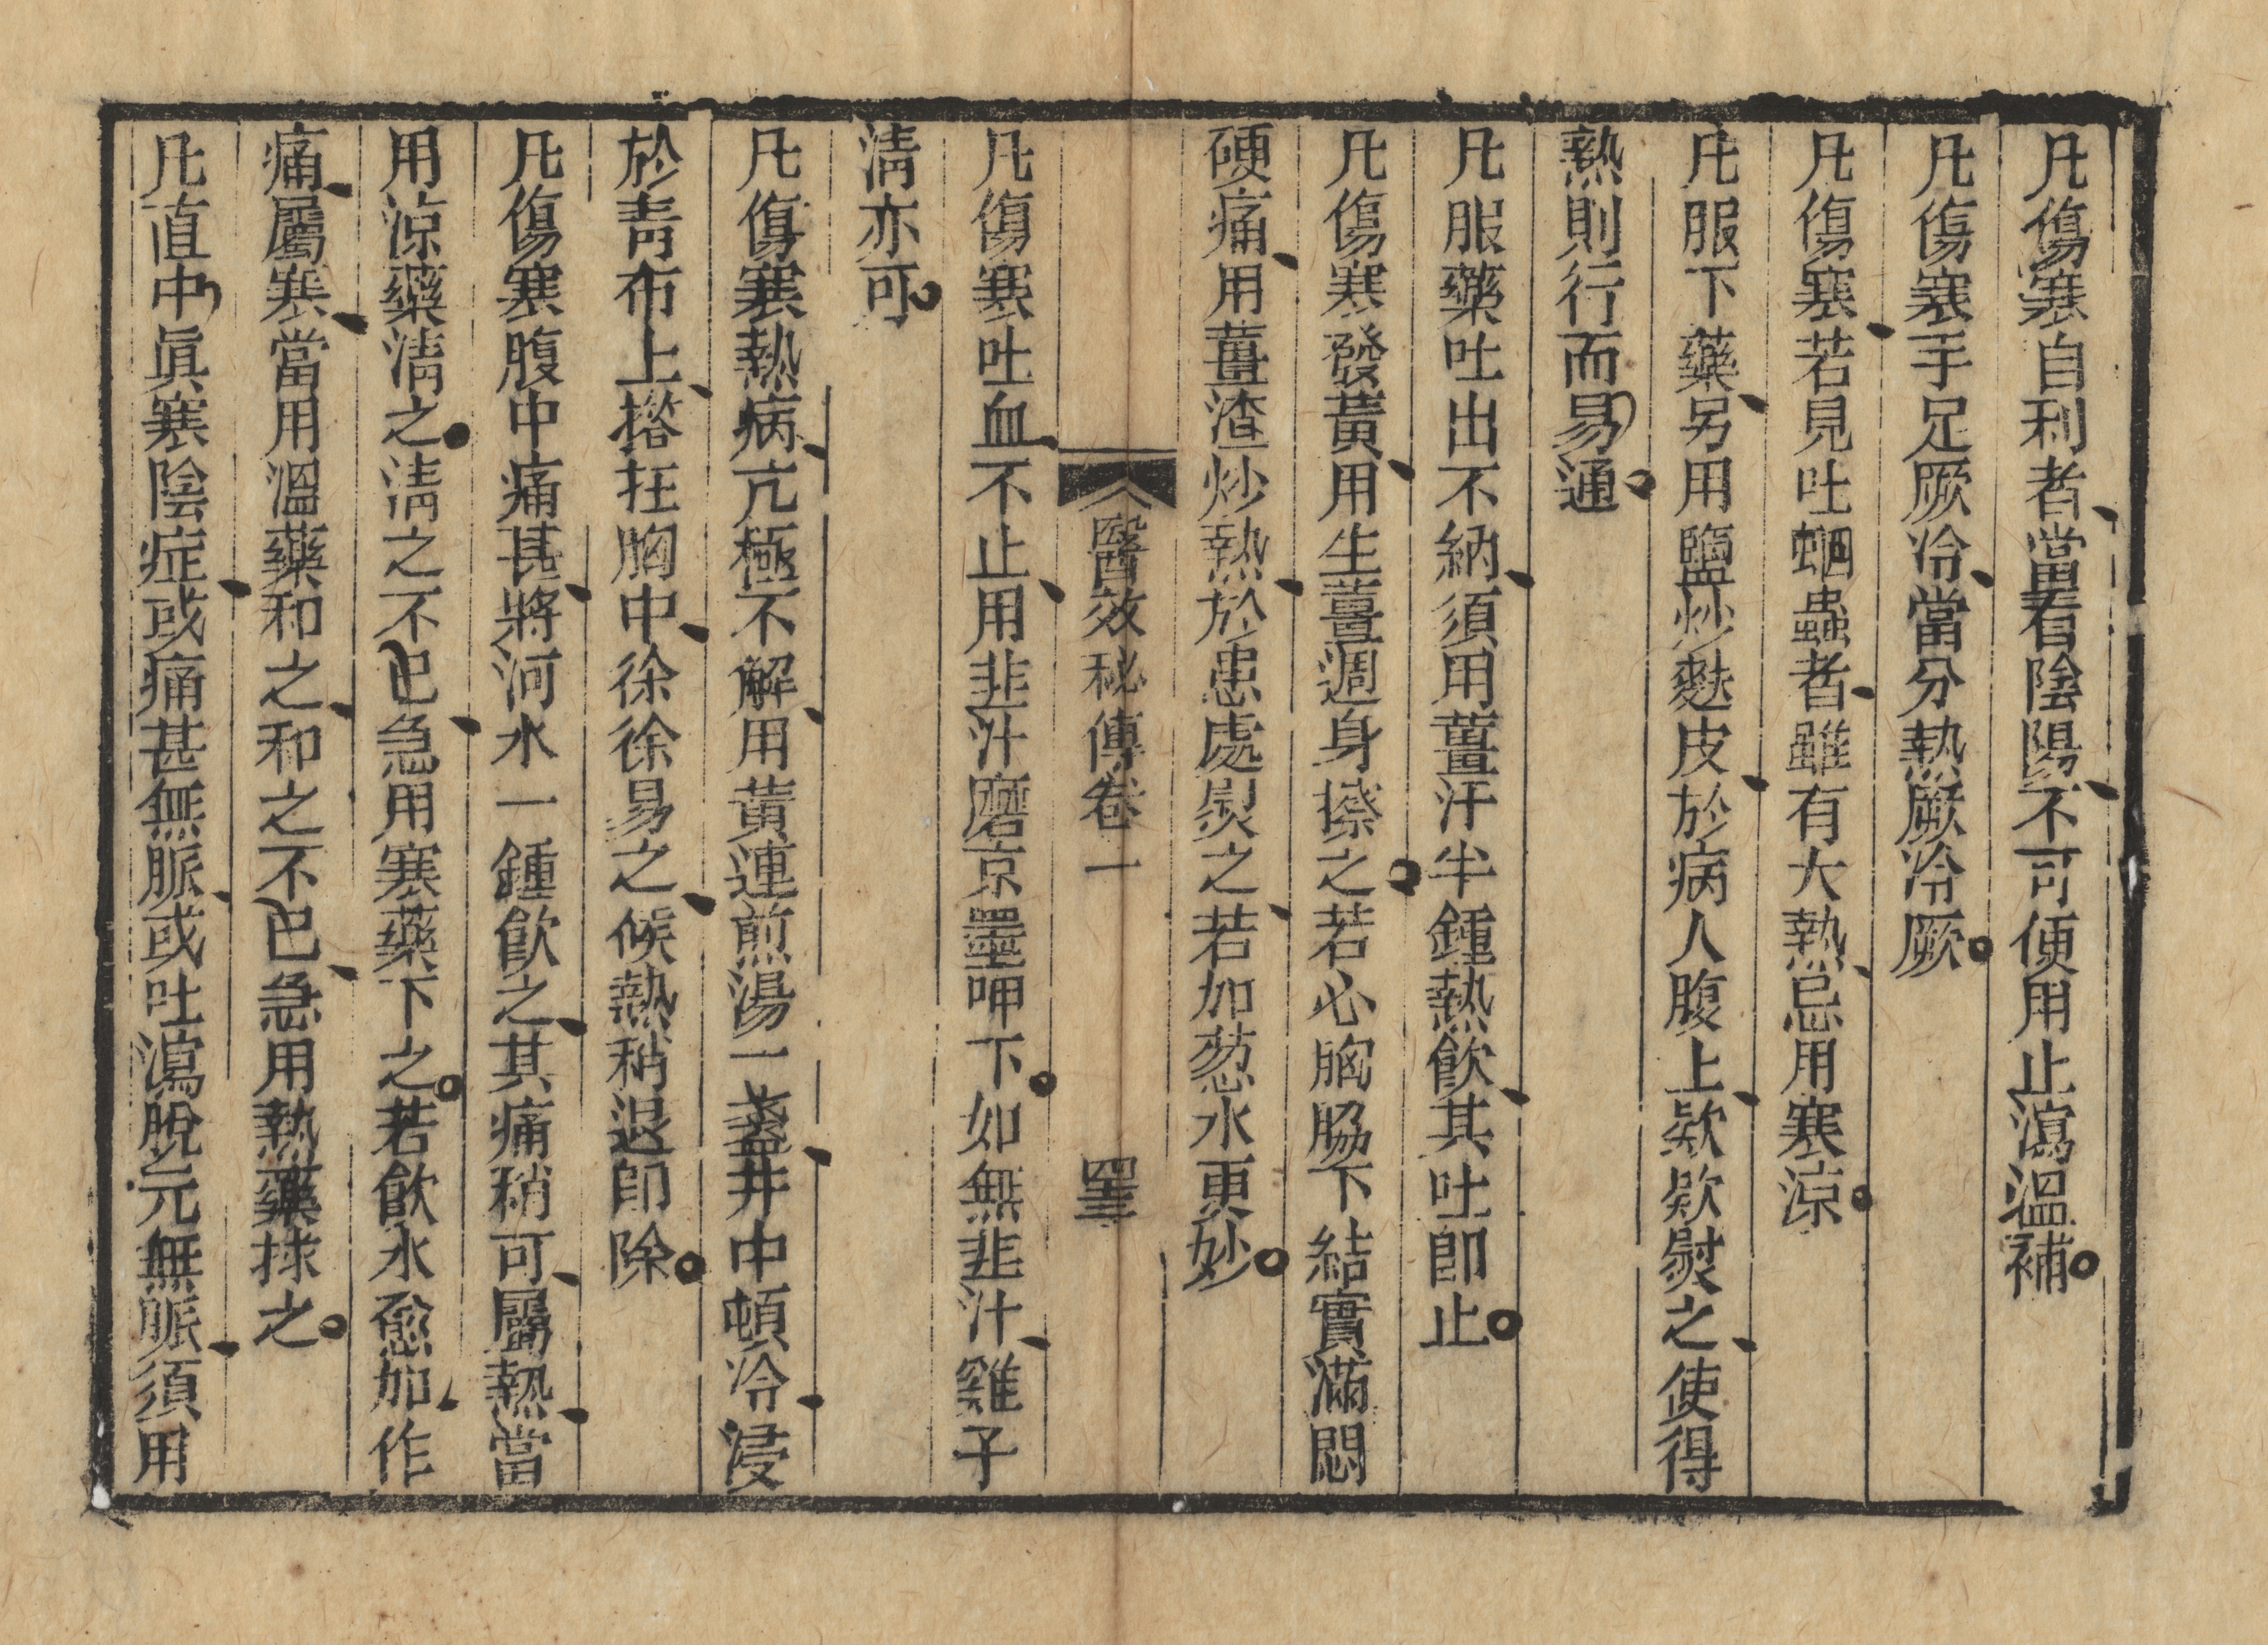 凡傷寒自利者、當看陰陽、不可便用止瀉溫補。
凡傷寒手足厥冷、當分熱厥冷厥。
凡傷寒、若見吐蛔蟲者、雖有大熱、忌用寒涼。
凡服下藥、另用鹽炒麩皮、於病人腹上、欵欵熨之、使得
熱則行而易通。
凡服藥吐出不納、須用薑汁半鍾熱飮、其吐卽止。
凡傷寒發黃、用生薑週身擦之。若心胸脇下結實滿悶
硬痛、用薑渣炒熱、於患處熨之、若加葱水更妙。
醫效秘傳卷一 
凡傷寒吐血、不止、用韭汁磨京墨呷下。如無韭汁、雞子
淸亦可。
凡傷寒熱病、亢極不解、用黃連煎湯一盞、井中頓冷、浸
於靑布上、搭在胸中、徐徐易之、候熱稍退卽除。
凡傷寒腹中痛甚、將河水一鍾飮之、其痛稍可、屬熱、當
用涼藥淸之。淸之不已、急用寒藥下之。若飮水愈加作
痛、屬寒、當用溫藥和之、和之不已、急用熱藥捄之。
凡直中眞寒陰症、或痛甚無脈、或吐瀉脫元無脈、須用